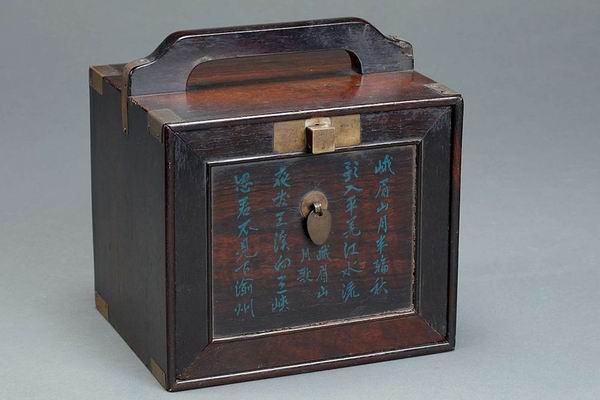 峨眉山月半輪秋
影入平羌江水流
峨眉山
月歌
夜发清溪向三峽
思君不見下渝州